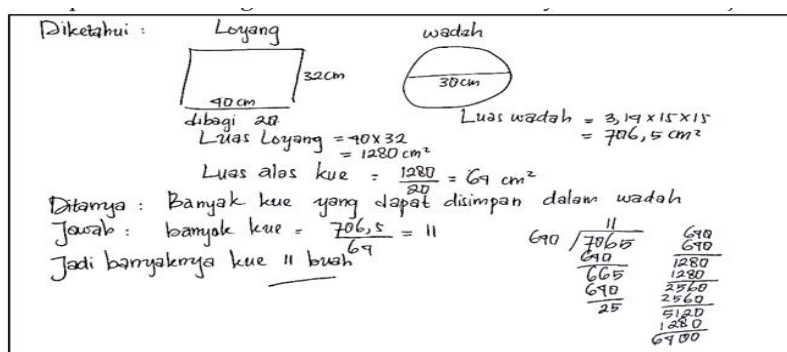 Diketahui : Loyang wadah
32cm
30cm
40cm
dibagi 20
Luas Loyang = 40 x 32
= 1280 cm²
Luas wadah = 3,14 x 15 x 15
= 706,5 cm²
Luas alas kue = 1280/20 = 64 cm²
Ditanya : Banyak kue yang dapat disimpan dalam wadah
Jawab : banyak kue = 706,5/64 = 11
Jadi banyaknya kue 11 buah
11
640 / 7065
640
665
640
25
640
640
1280
1280
2560
2560
5120
1280
6400